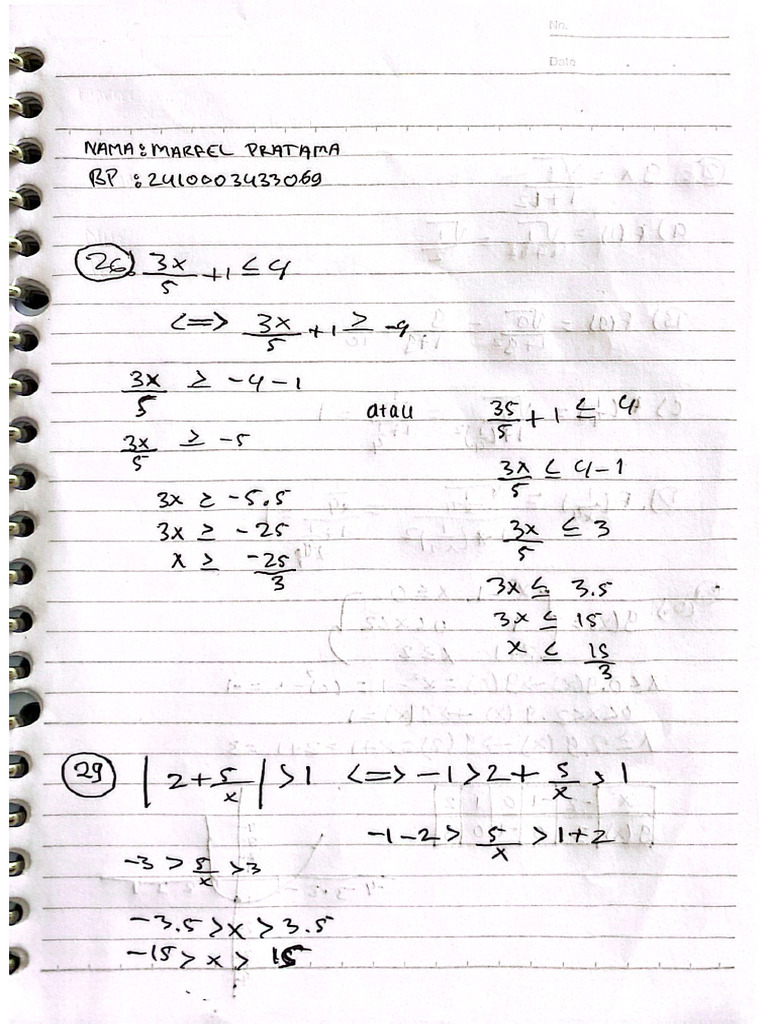 No.
Date
NAMA : MARFEL PRATAMA
BP : 2410003433069
26. 3x/5 + 1 ≤ 4
<=> 3x/5 + 1 ≥ -4
3x/5 ≥ -4 - 1
3x/5 ≥ -5
3x ≥ -5.5
3x ≥ -25
x ≥ -25/3
atau
35/5 + 1 ≤ 4
3x/5 ≤ 4 - 1
3x/5 ≤ 3
3x ≤ 3.5
3x ≤ 15
x ≤ 15/3
29 |2 + 5/x| > 1 <=> -1 > 2 + 5/x > 1
-1 - 2 > 5/x > 1 + 2
-3 > 5/x > 3
-3.5 > x > 3.5
-15 > x > 15